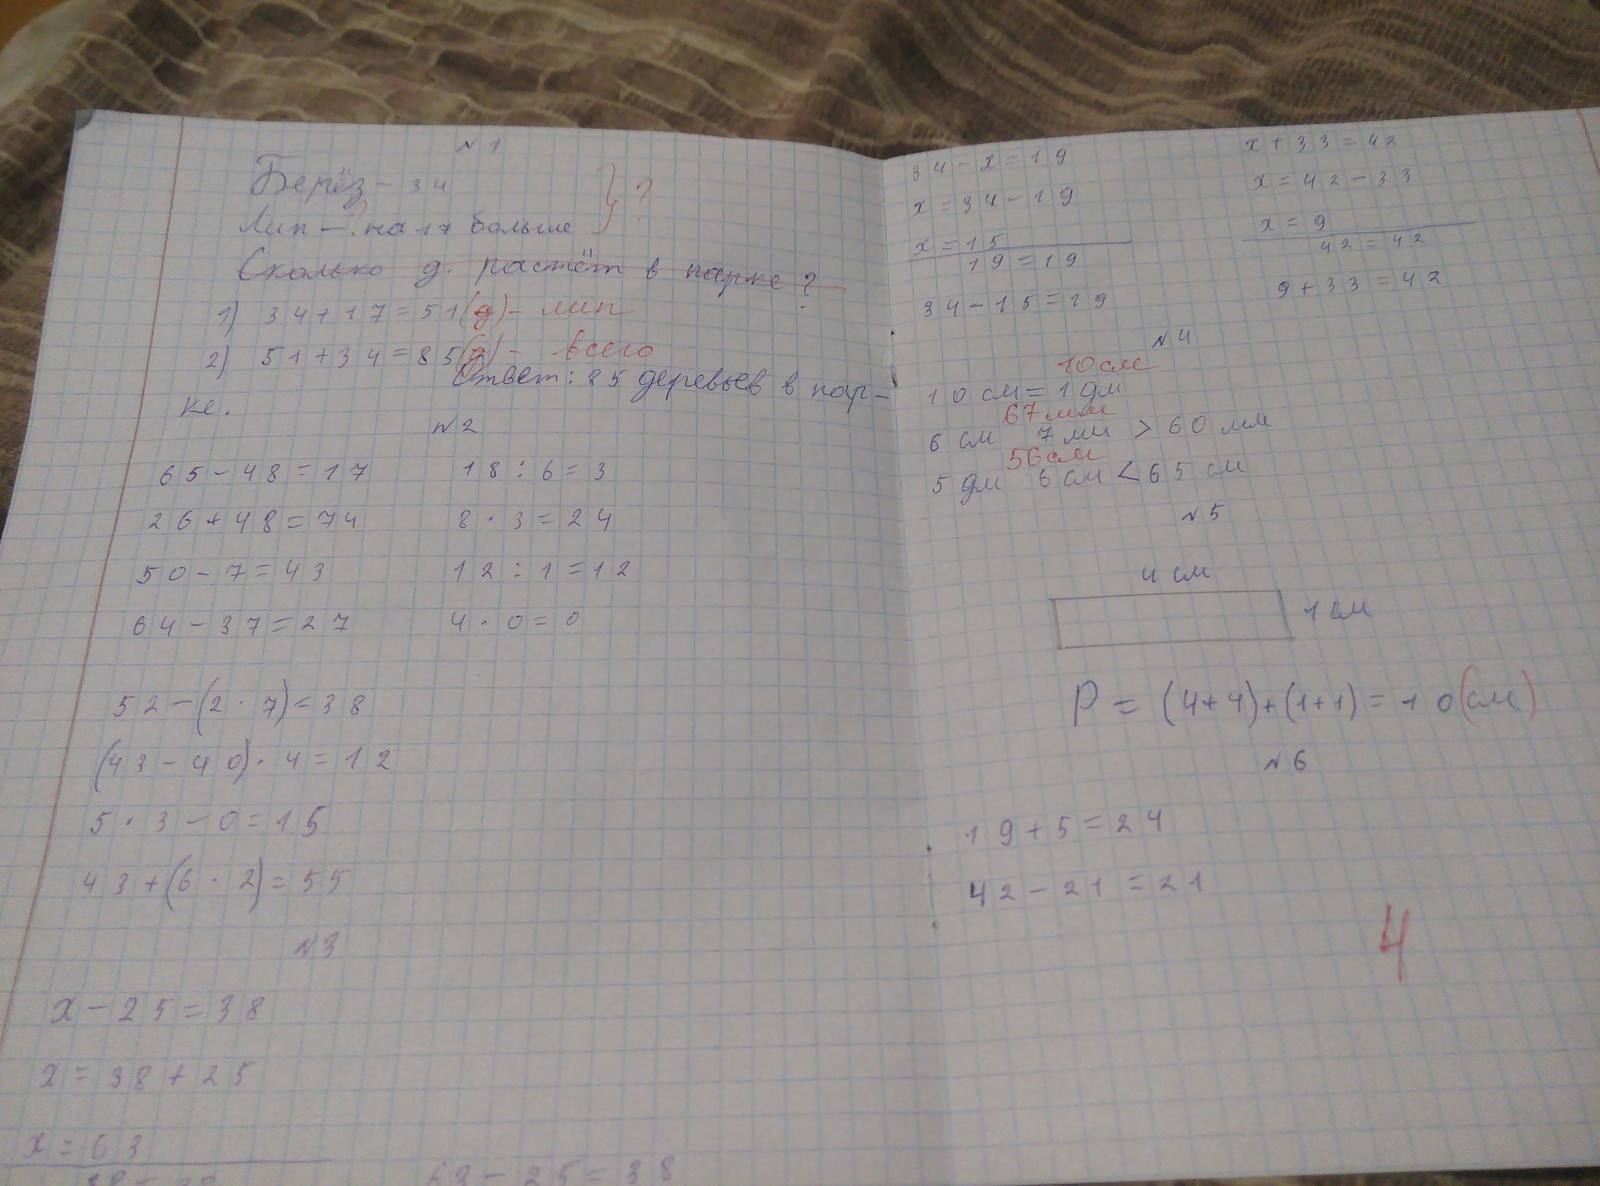 №1
Берёз - 34 } ?
Лип - ? на 17 больше
Сколько д. растёт в парке?
1) 34+17=51(д) - лип
2) 51+34=85(д) - всего
Ответ: 85 деревьев в пар-
ке.
№2
65-48=17 18:6=3
26+48=74 8·3=24
50-7=43 12:1=12
64-37=27 4·0=0
52-(2·7)=38
(43-40)·4=12
5·3-0=15
43+(6·2)=55
№3
x-25=38
x=38+25
x=63
38=38 63-25=38
34-x=19 x+33=42
x=34-19 x=42-33
x=15 x=9
19=19 42=42
34-15=19 9+33=42
№4
10см
10см=1дм
67мм
6см 7мм > 60мм
56см
5дм 6см < 65см
№5
4см
1см
P=(4+4)+(1+1)=10(см)
№6
19+5=24
42-21=21
4